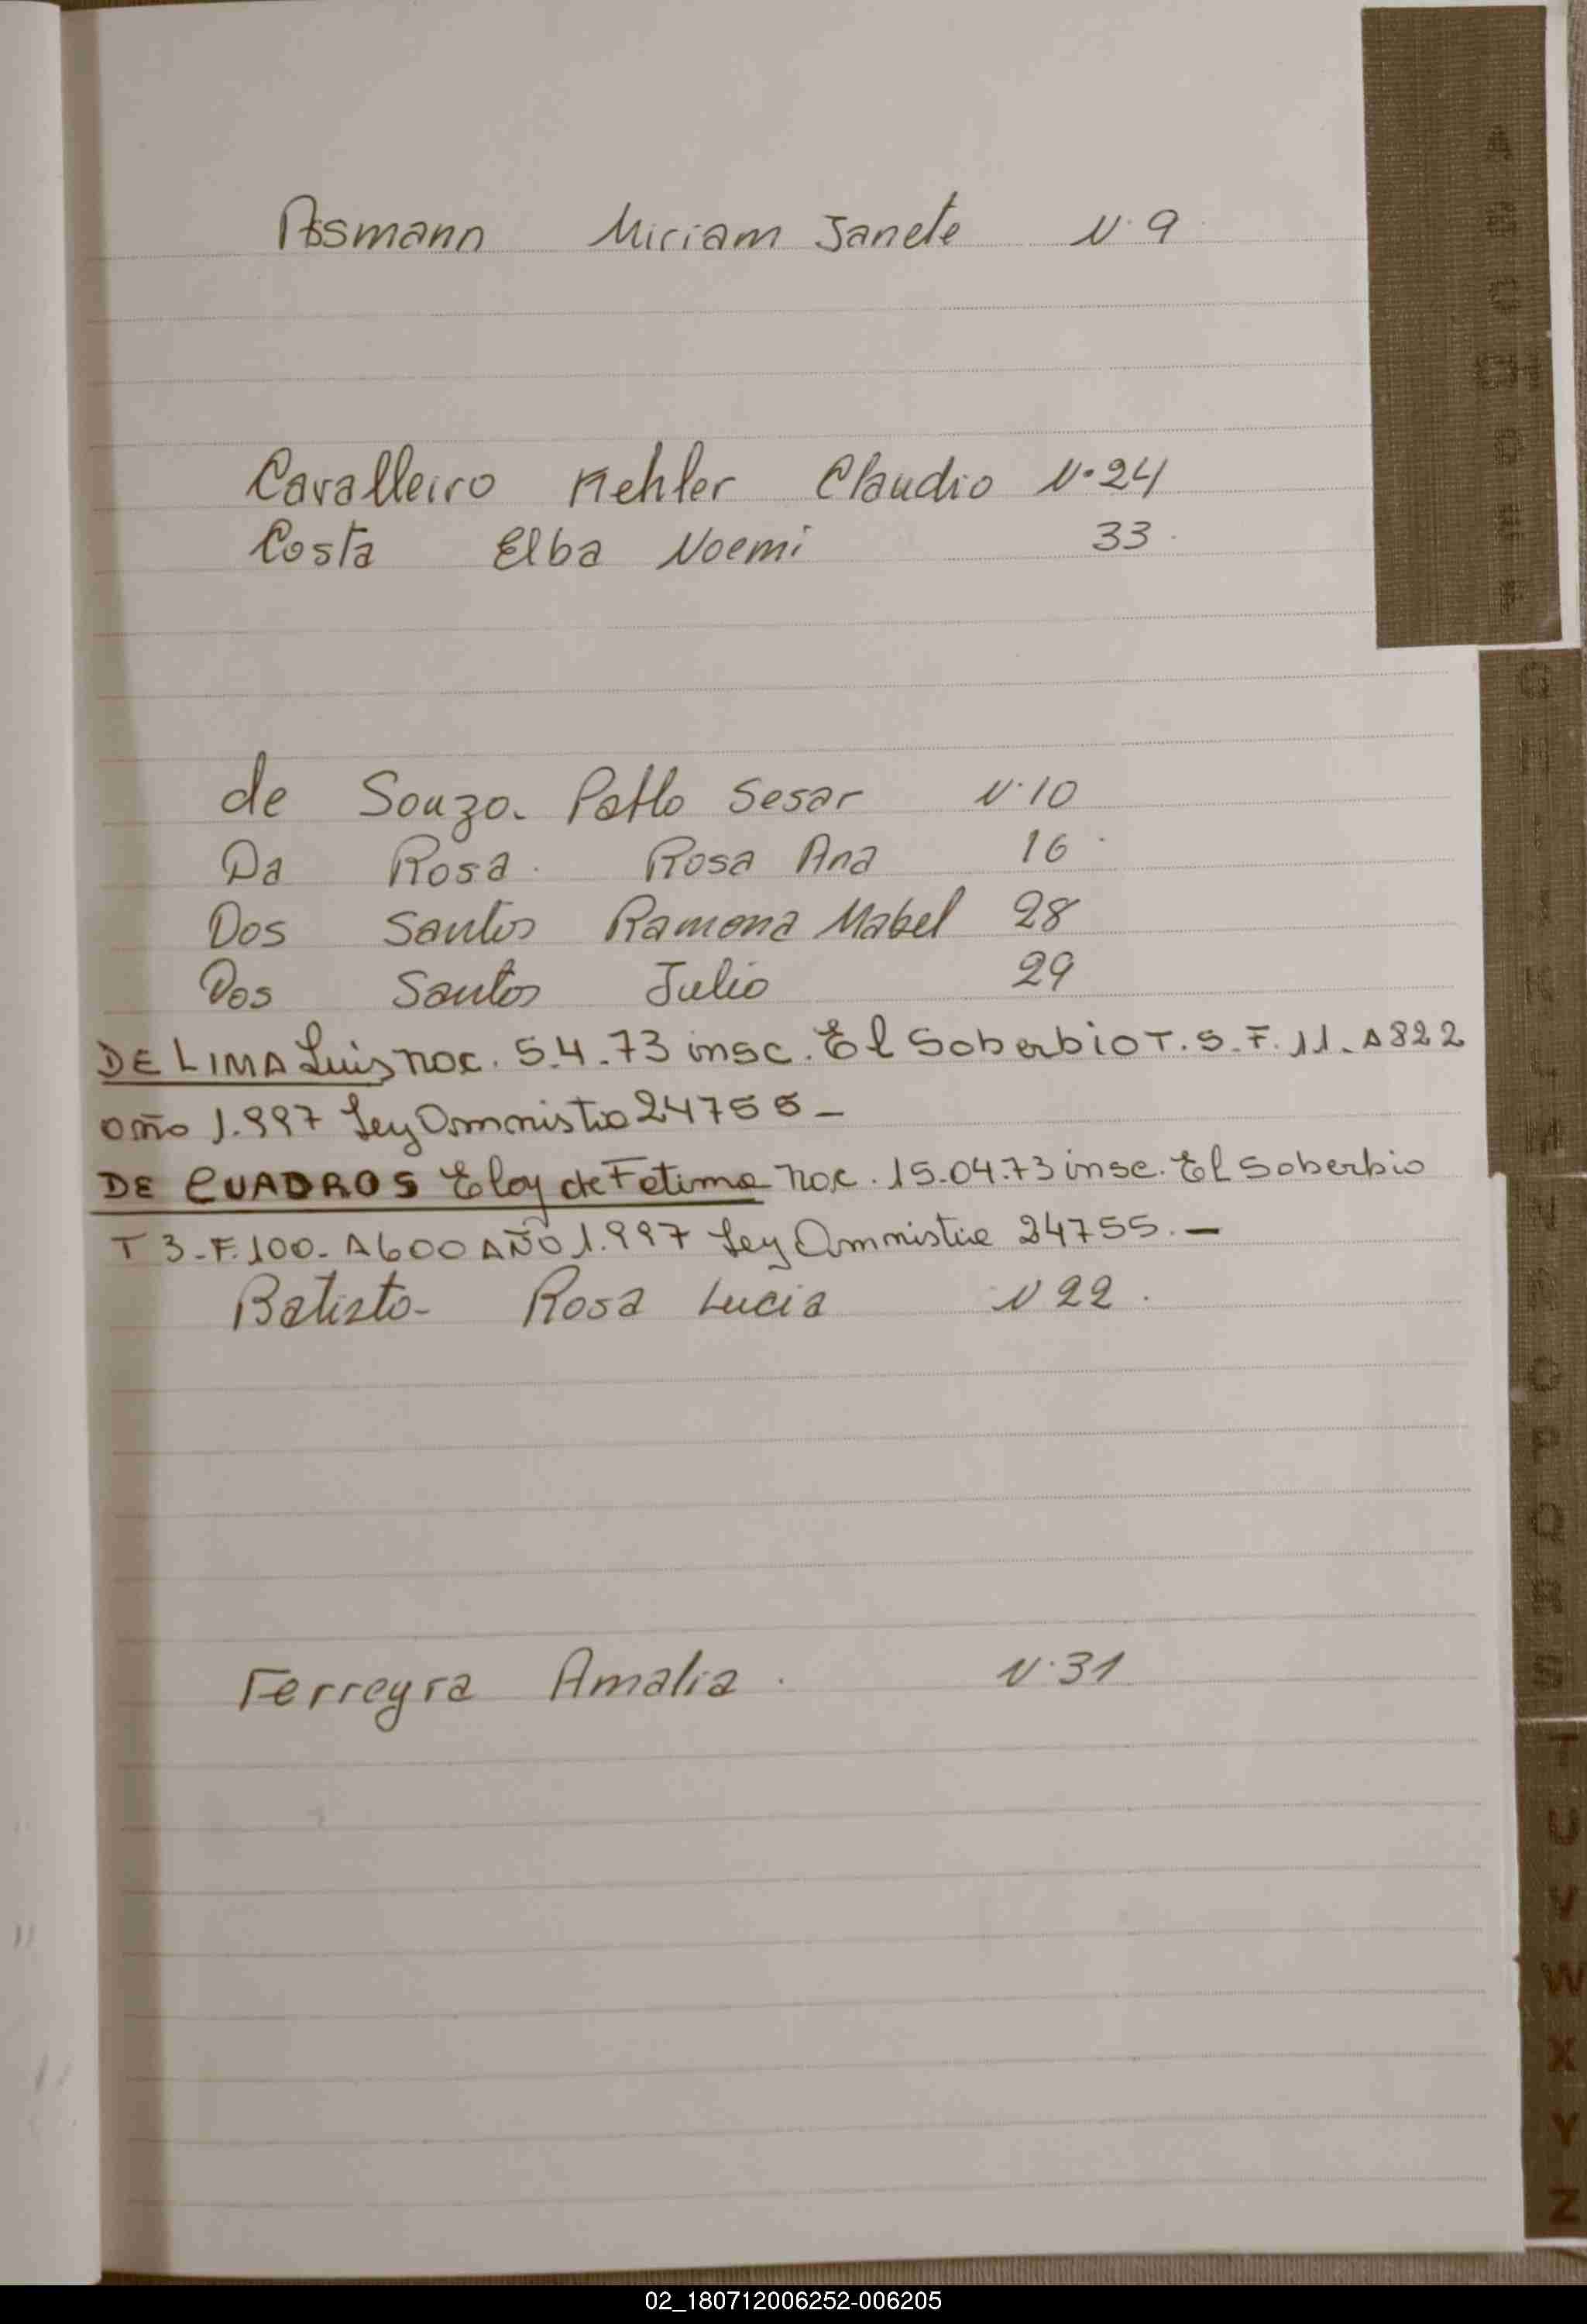 Asmann Miriam Janete N·9
Cavalleiro Kehler Claudio N·24
Costa Elba Noemi 33
de Souza Pablo Sesar N·10
Da Rosa Rosa Ana 16
Dos Santos Ramona Mabel 28
Dos Santos Julio 29
DE LIMA Luis nac. 5.4.73 insc. El Soberbio T. 5. F. 11. A 822
año 1.997 Ley Amnistia 24755 -
DE CUADROS Eloy de Fatima nac. 15.04.73 insc. El Soberbio
T 3 - F. 100 - A 600 AÑO 1.997 Ley Amnistia 24755. -
Batista Rosa Lucia N 22
Ferreyra Amalia N·31
T
U
V
W
X
Y
Z
02_180712006252-006205